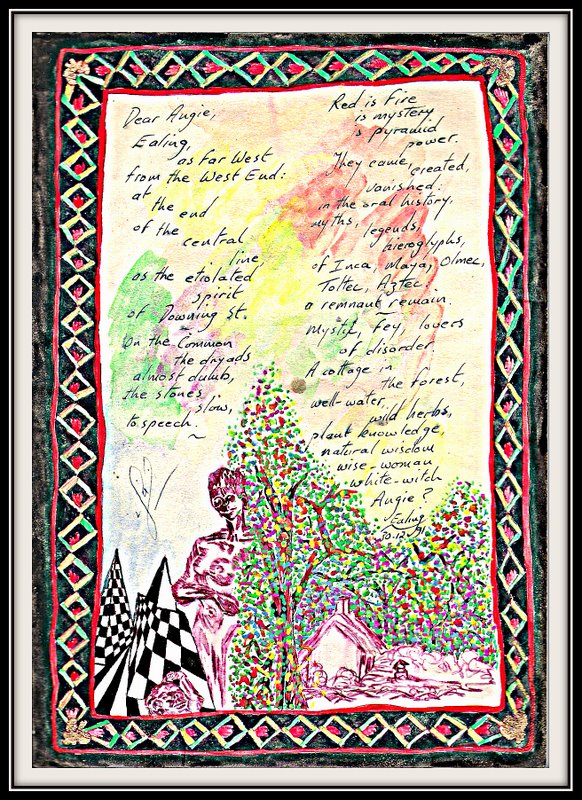 Dear Angie,
Ealing,
as far West
from the West End:
at
the end
of the
central
line
as the etiolated
spirit
of Downing St.
~
On the Common
the dryads
almost dumb,
the stones
slow,
to speech.
~
Red is Fire
is mystery
is pyramid
power.
They came,
created,
vanished:
in the oral history,
myths,
legends,
hieroglyphs,
of Inca, Maya, Olmec,
Toltec, Aztec
a remnant remain.
Mystix, Fey, lovers
of disorder
A cottage in
the forest,
well-water,
wild herbs,
plant knowledge,
natural wisdom
wise-woman
white-witch
Angie?
Ealing